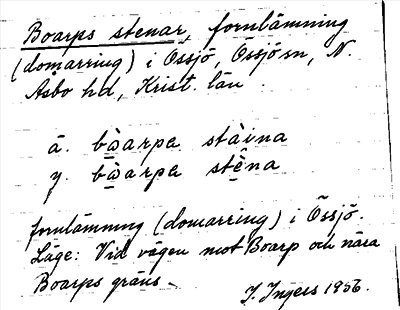 Boarps stenar, fornlämning
(domarring) i Össjö, Össjö sn, N.
Åsbo hd, Krist. län.
ä. bòarpa stàina
y. bòarpa stèna
fornlämning (domarring) i Össjö.
Läge: Vid vägen mot Boarp och nära
Boarps gräns.
I. Ingers 1956.